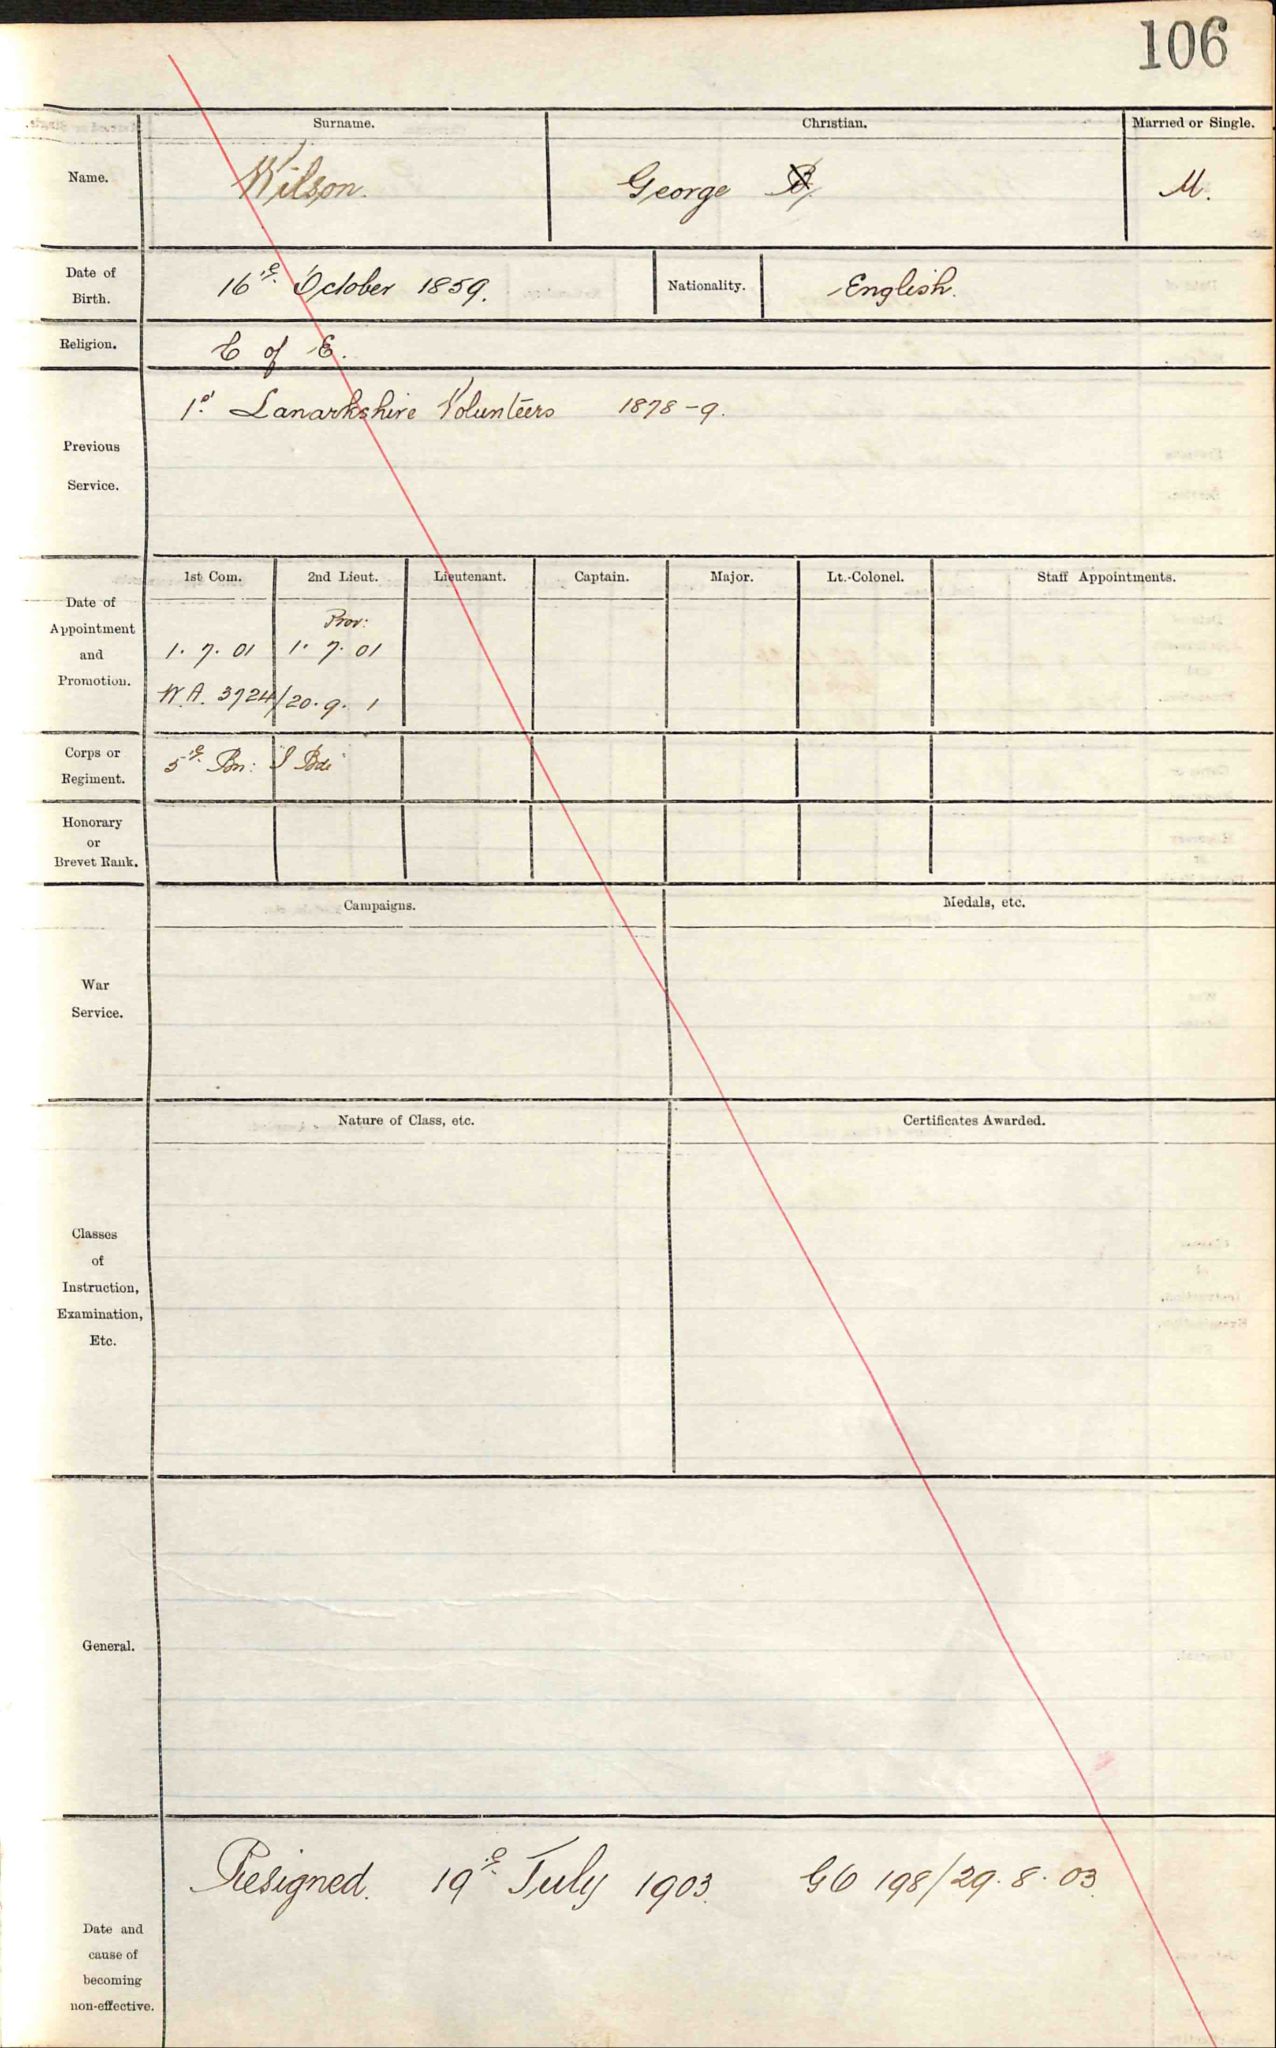 106
Surname. Christian. Married or Single.
Name. Wilson. George M.
Date of
Birth. 16th October 1859. Nationality. English.
Religion. C of E.
1st Lanarkshire Volunteers 1878-9.
Previous
Service.
1st Com. 2nd Lieut. Lieutenant. Captain. Major. Lt.-Colonel. Staff Appointments.
Date of
Appointment
and
Promotion.
Prov:
1. 7. 01 1. 7. 01
W.A. 3724/20. 9. 1
Corps or
Regiment.
5th Bn: I Bde
Honorary
or
Brevet Rank.
Campaigns. Medals, etc.
War
Service.
Nature of Class, etc. Certificates Awarded.
Classes
of
Instruction,
Examination,
Etc.
General.
Resigned. 19th July 1903. GO 198/29. 8. 03.
Date and
cause of
becoming
non-effective.